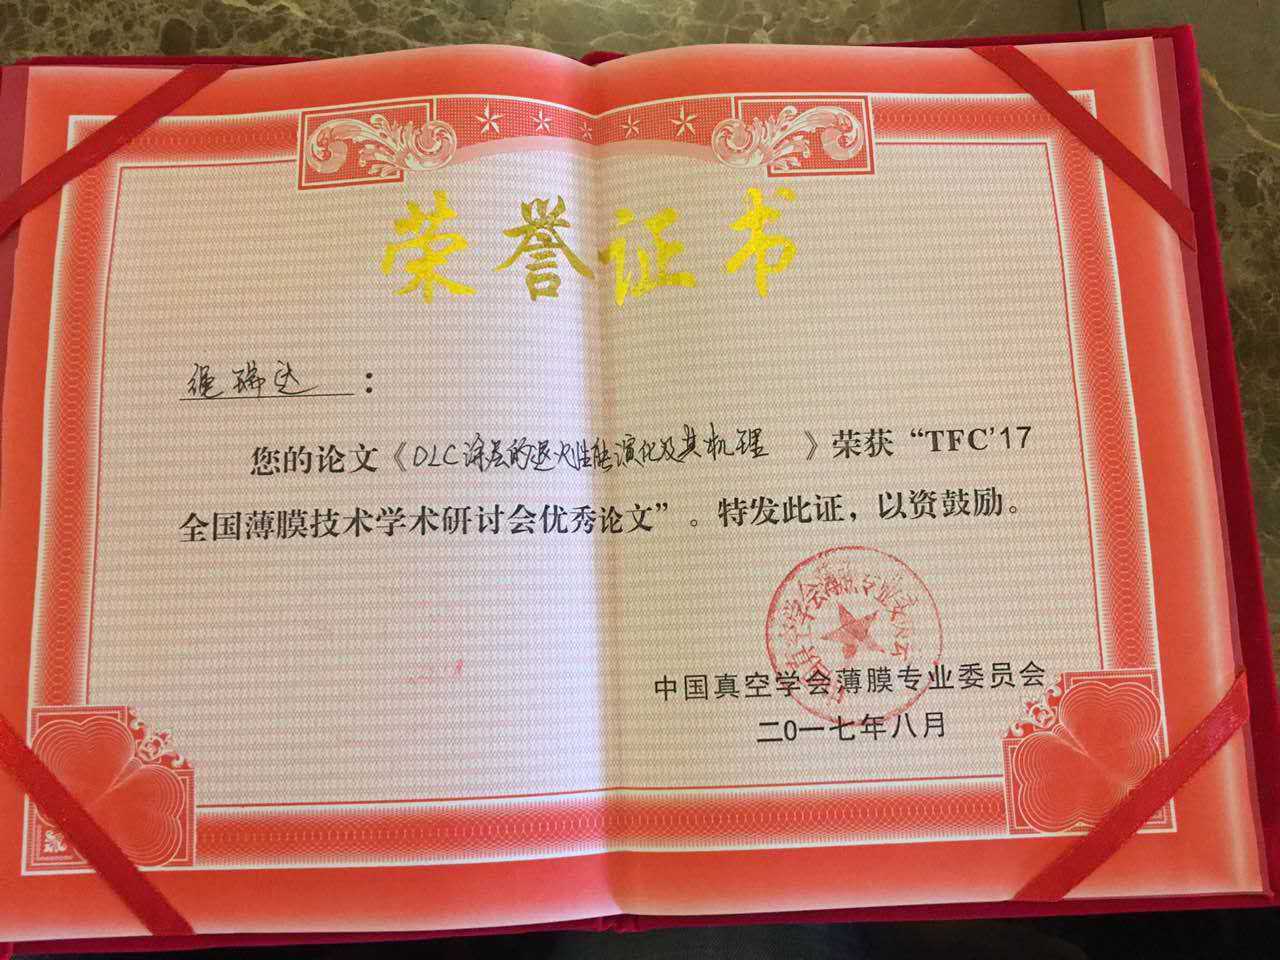 荣誉证书
绳瑞达：
您的论文《DLC涂层的退火性能演化及其机理》荣获“TFC’17
全国薄膜技术学术研讨会优秀论文”。特发此证，以资鼓励。
中国真空学会薄膜专业委员会
中国真空学会薄膜专业委员会
二0一七年八月